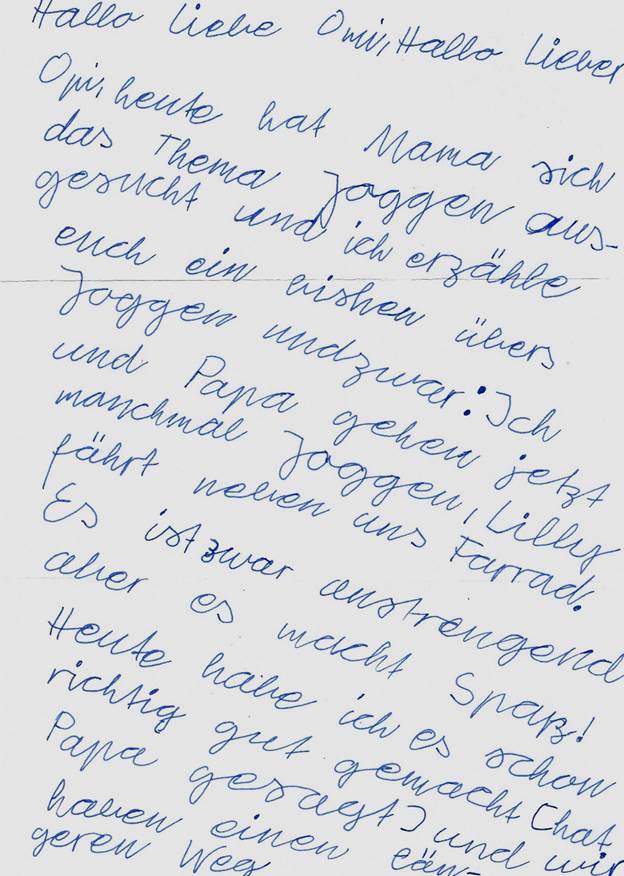 Hallo Liebe Omi, Hallo Lieber
Opi, heute hat Mama sich
das Thema Joggen aus-
gesucht und ich erzähle
euch ein bishen übers
Joggen undzwar: Ich
und Papa gehen jetzt
manchmal Joggen, Lilly
fährt neben uns Farrad.
Es ist zwar anstrengend
aber es macht Spaß!
Heute habe ich es schon
richtig gut gemacht (hat
Papa gesagt) und wir
haben einen län-
geren Weg